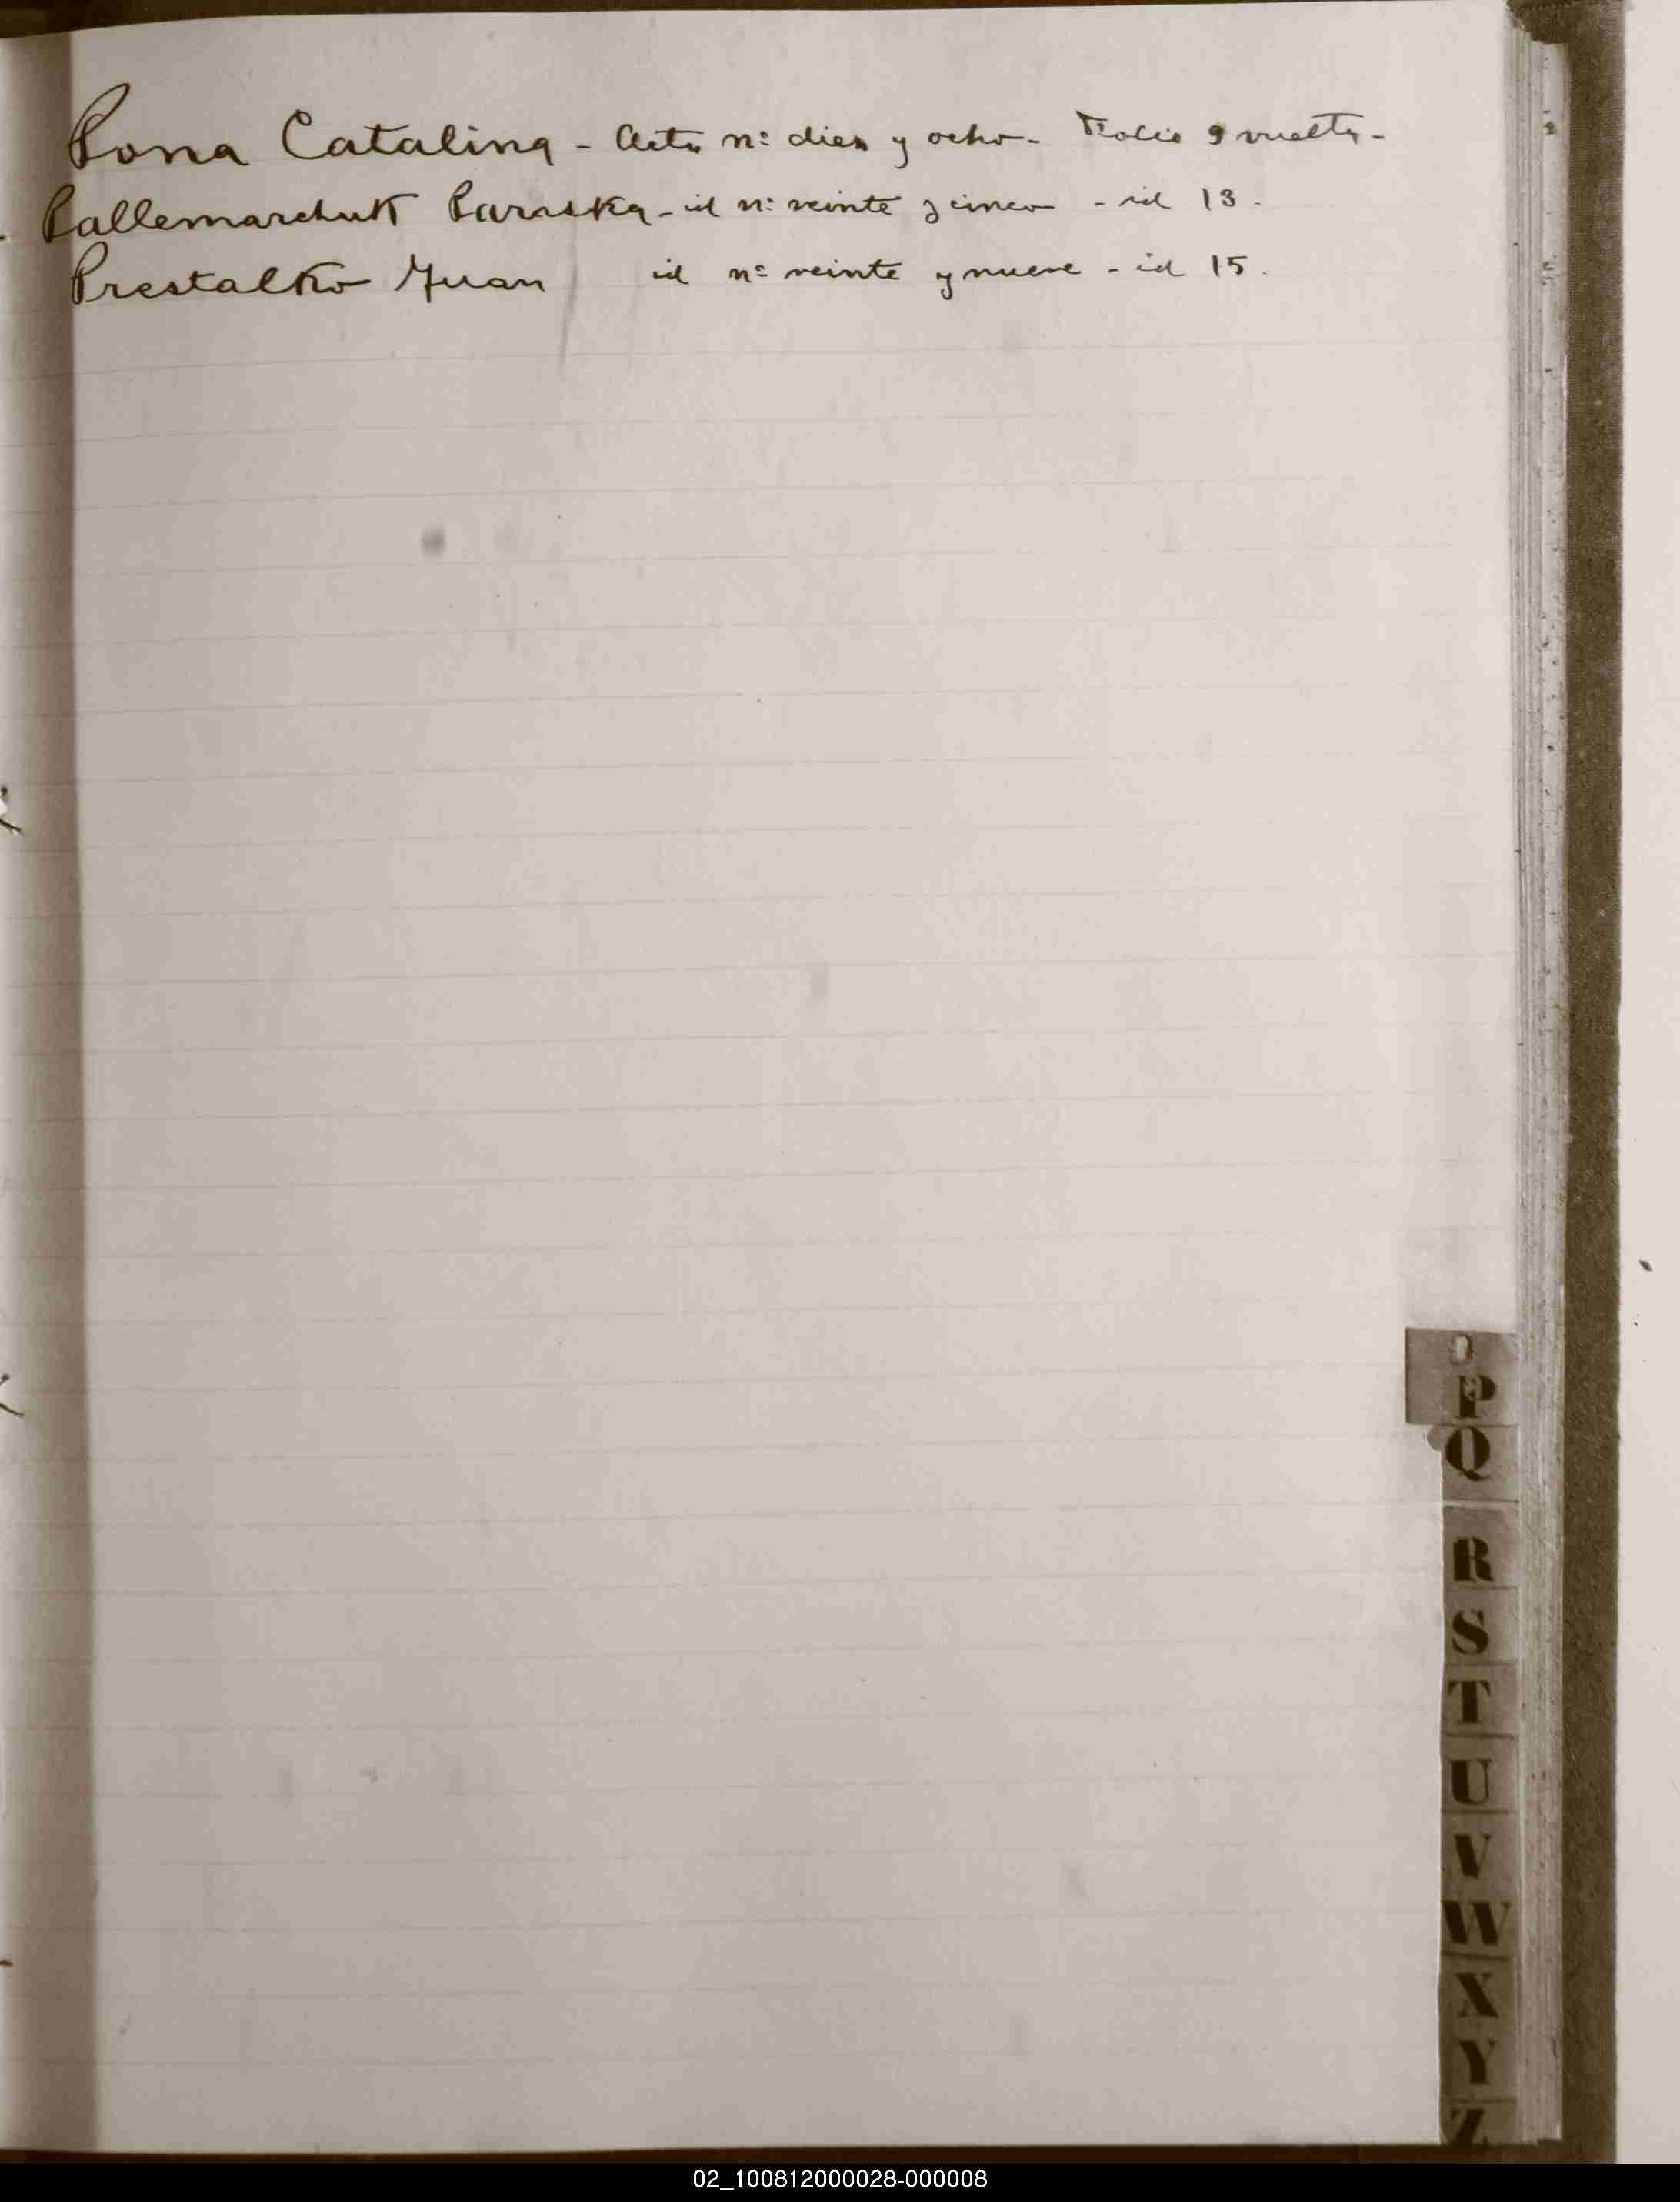 Pona Catalina - Acta nº diez y ocho - Folio 9 vuelta -
Pallemarchuk Paraska - id nº veinte y cinco - id 13.
Prestalko Juan id nº veinte y nueve - id 15.
O
P
Q
R
S
T
U
V
W
X
Y
Z
02_100812000028-000008